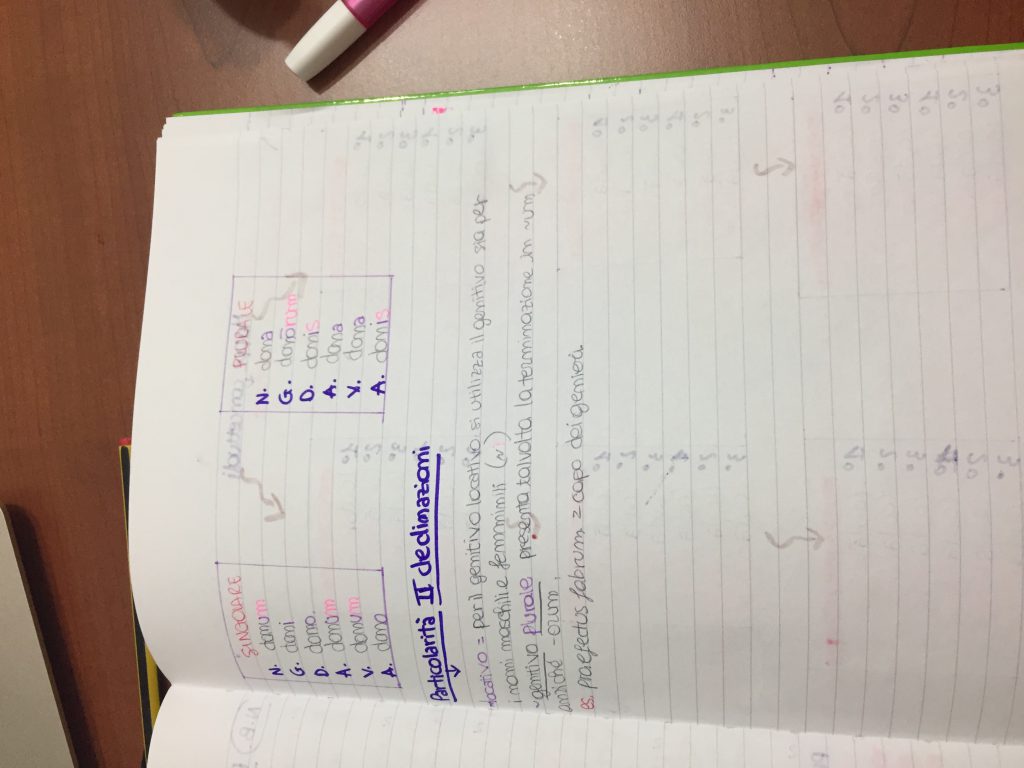 SINGOLARE
N. donum
G. doni
D. dono
A. donum
V. donum
A. dono
PLURALE
N. dona
G. donorum
D. donis
A. dona
V. dona
A. donis
Particolarità II declinazioni
locativo = per il genitivo locativo si utilizza il genitivo sia per
i nomi maschili e femminili (~i)
~genitivo plurale presenta talvolta la terminazione in ~um
anziché -orum.
es. praefectus fabrum = capo dei genieri.